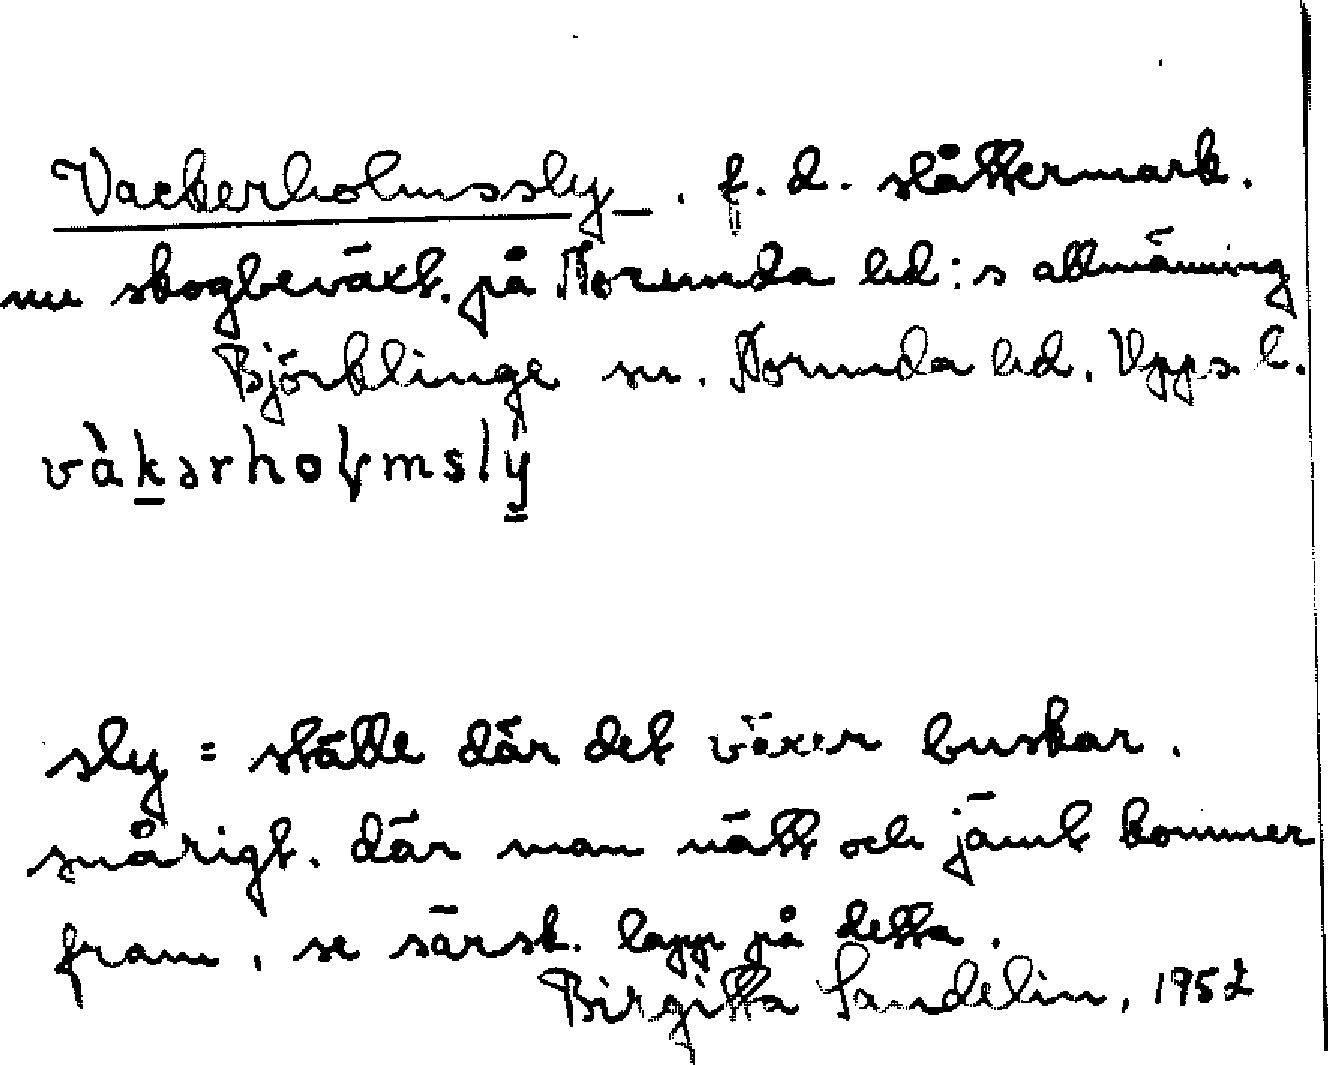 Vackerholmssly_. f.d. slåttermark.
nu skogbeväxt. på Norunda hd:s allmänning
Björklinge sn. Norunda hd. Upps. l.
vàkərhoɭmslý
sly = ställe där det växer buskar.
snårigt. där man nätt och jämt kommer
fram, se särsk. lapp på detta.
Birgitta Sandelin, 1952